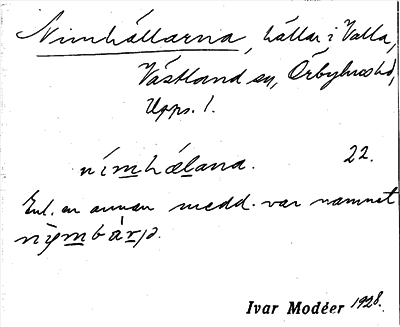 Nimhällarna, hällar i Valla,
Västland sn, Örbyhus hd,
Upps. l.
nímhæլana. 22.
Enl. en annan medd. var namnet
Ivar Modéer 1928.